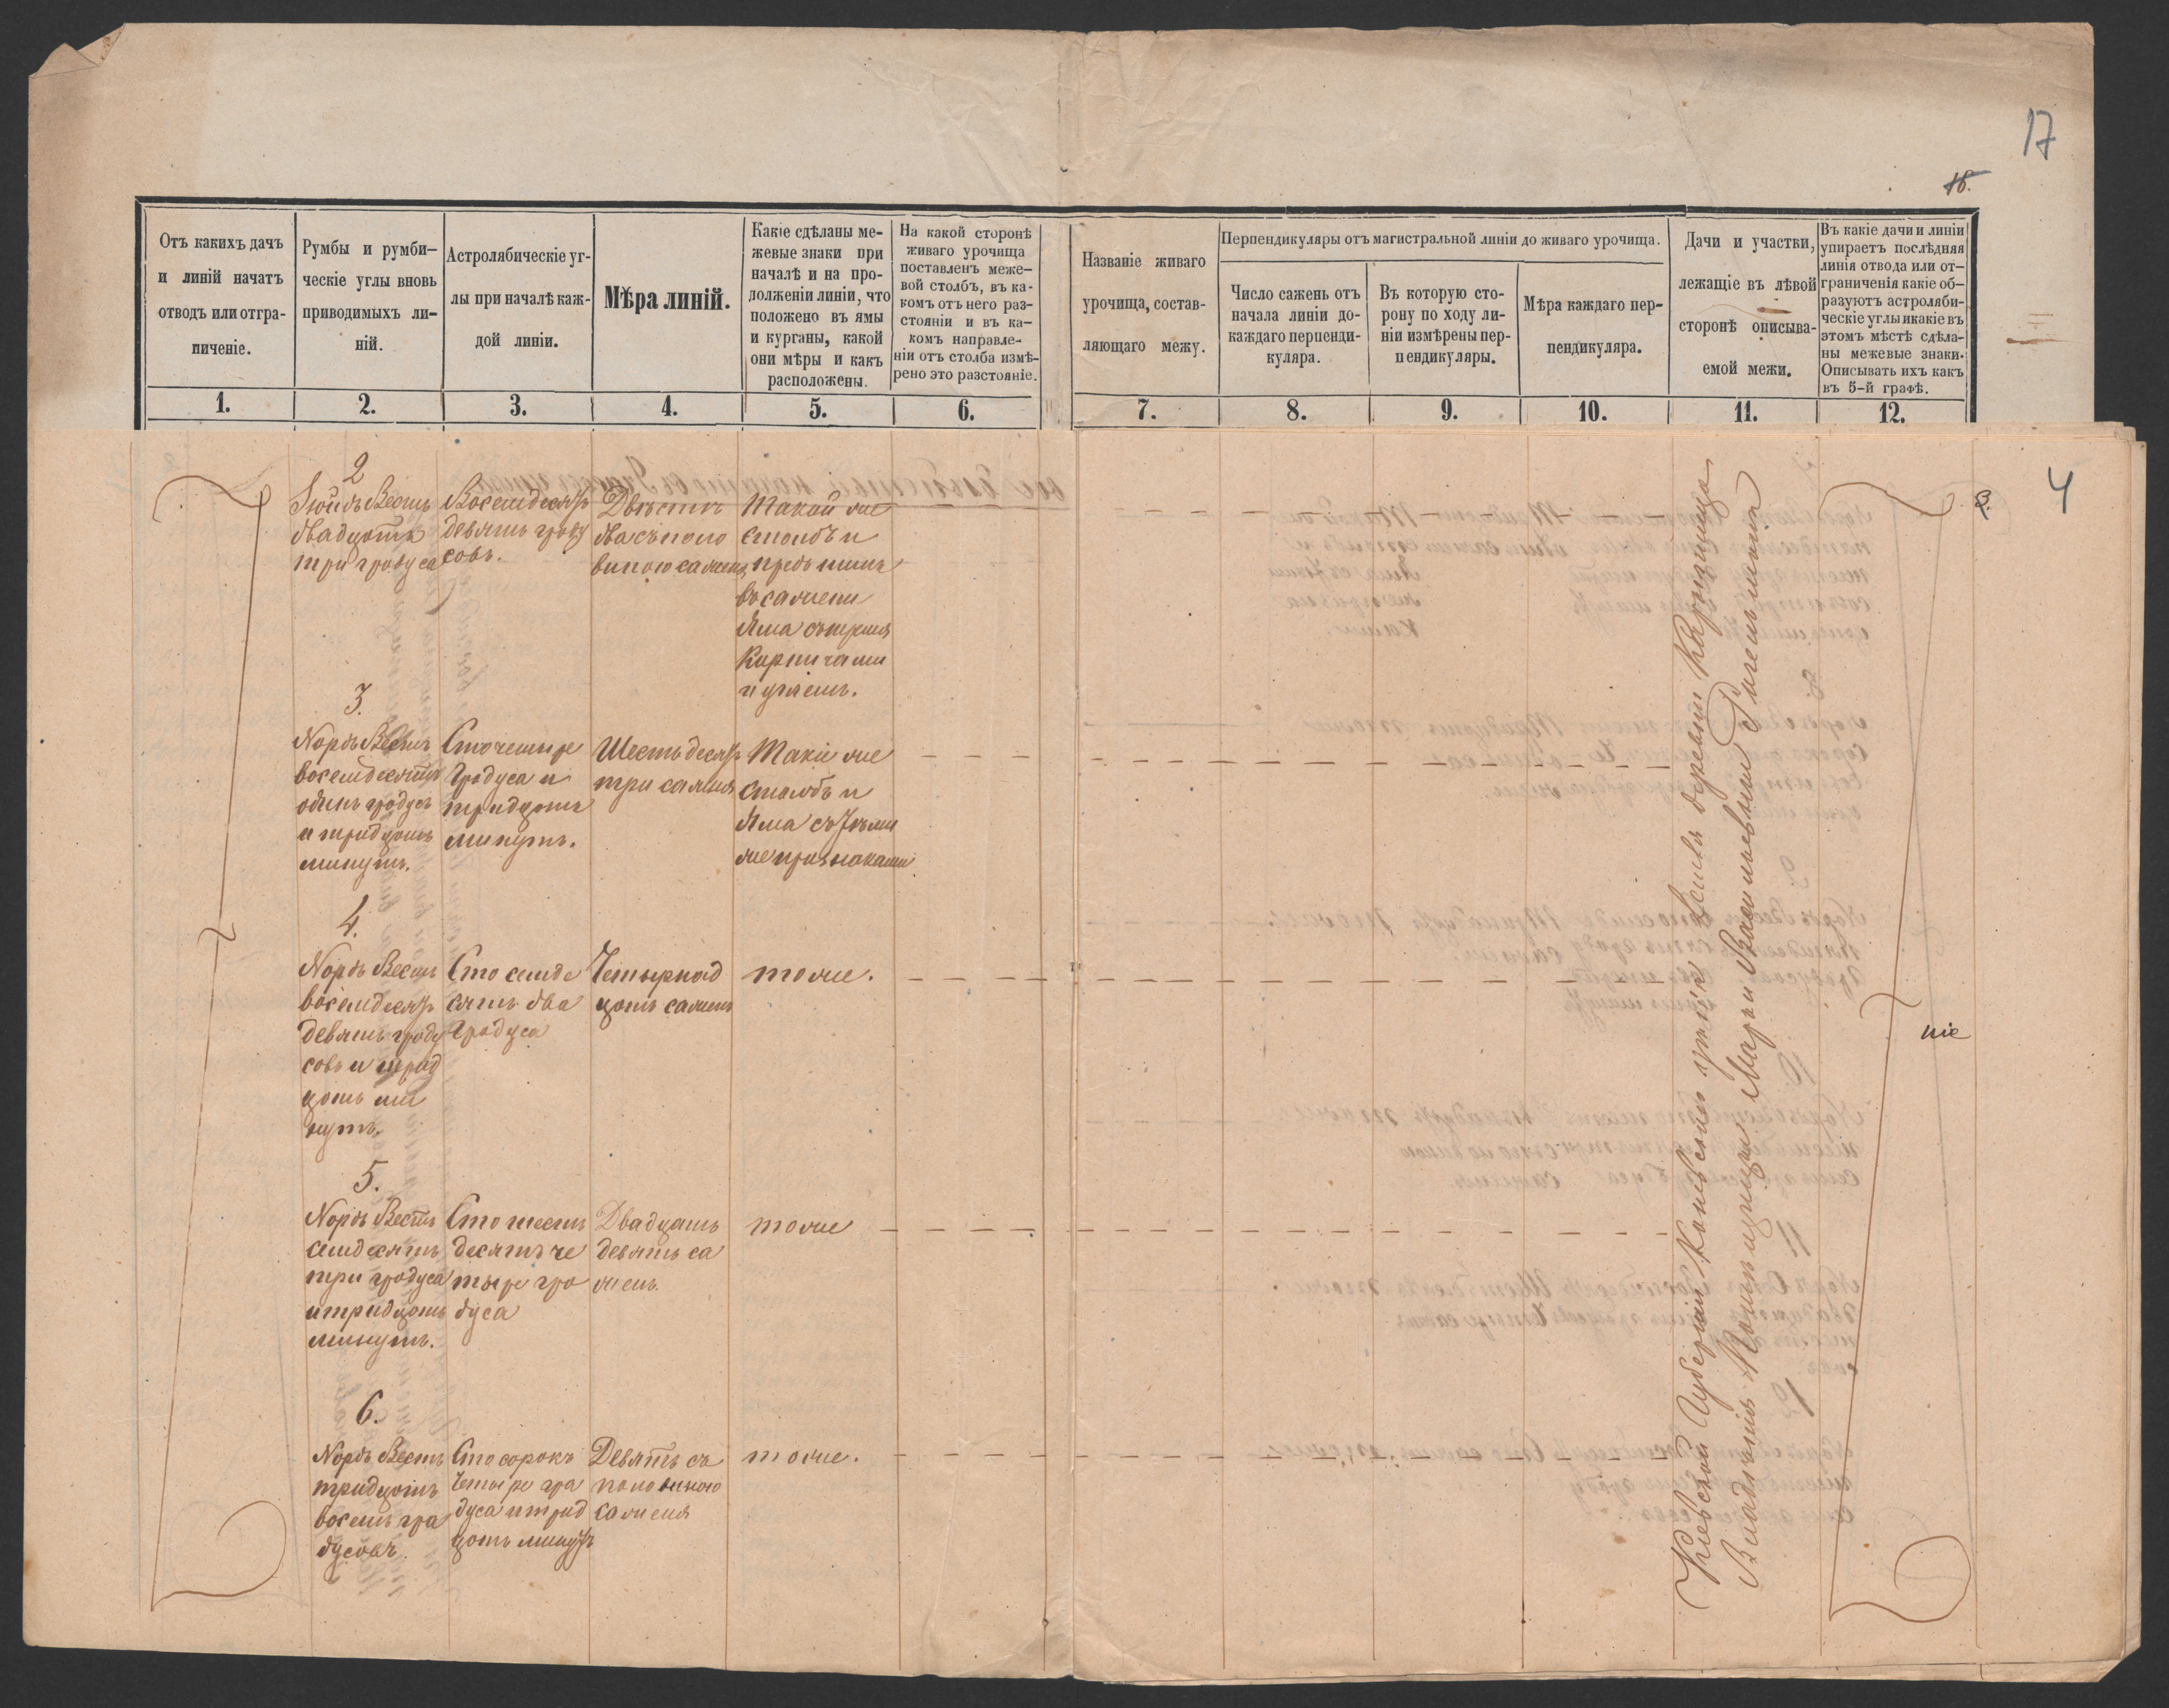 17
18.
Отъ какихъ дачъ
и линій начатъ
отводъ или отгра-
ниченіе.
Румбы и румби-
ческіе углы вновь
приводимыхъ ли-
ній.
Астролябическіе уг-
лы при началѣ каж-
дой линіи.
Мѣра линій.
Какіе сдѣланы ме-
жевые знаки при
началѣ и на про-
долженіи линіи, что
положено въ ямы
и курганы, какой
они мѣры и какъ
расположены.
На какой сторонѣ
живаго урочища
поставленъ меже-
вой столбъ, въ ка-
комъ отъ него раз-
стояніи и въ ка-
комъ направле-
ніи отъ столба измѣ-
рено это разстояніе.
Названіе живаго
урочища, состав-
ляющаго межу.
Перпендикуляры отъ магистральной линіи до живаго урочища.
Число сажень отъ
начала линіи до-
каждаго перпенди-
куляра.
Въ которую сто-
рону по ходу ли-
ніи измѣрены пер-
пендикуляры.
Мѣра каждаго пер-
пендикуляра.
Дачи и участки,
лежащіе въ лѣвой
сторонѣ описыва-
емой межи.
Въ какіе дачи и линіи
упирается послѣдняя
линія отвода или от-
граниченія какіе об-
разуютъ астроляби-
ческіе углы и какіе въ
этомъ мѣстѣ сдѣла-
ны межевые знаки.
Описывать ихъ какъ
въ 5-й графѣ.
1. 2. 3. 4. 5. 6. 7. 8. 9. 10. 11. 12.
4
3.
2
Зюйдъ Вестъ
двадцать
три градуса
Восемдесятъ
девять граду
совъ.
Двѣсти
два съ поло
виною сажень
Такой же
столбъ и
предъ нимъ
въ сажени
Яма съ тремя
Кирпичами
и углемъ.
3.
Nордъ Вестъ
восемдесятъ
одинъ градусъ
и тридцать
минутъ.
Сто четыре
градуса и
тридцать
минутъ.
Шестьдесятъ
три сажня
Такіе же
столбъ и
Яма съ тѣми
же признаками.
4.
Nордъ Вестъ
восемдесятъ
девять граду
совъ и трид
цать ми
нутъ.
Сто семде
сятъ два
градуса
Четырнад
цать сажень
тоже.
5.
Nордъ Вестъ
семдесятъ
три градуса
и тридцать
минутъ.
Сто шесть
десятъ че
тыре гра
дуса
Двадцать
девять са
жень.
тоже
6.
Nордъ Вестъ
тридцать
восемь гра
дусовъ.
Сто сорокъ
четыре гра
дуса и трид
цать минутъ
Девять съ
половиною
саженя
тоже.
Кіевской Губерніи Каневскаго уѣзда Земля деревни Карапищъ
Владѣнія Помѣщицы Маріи Васильевны
ніе